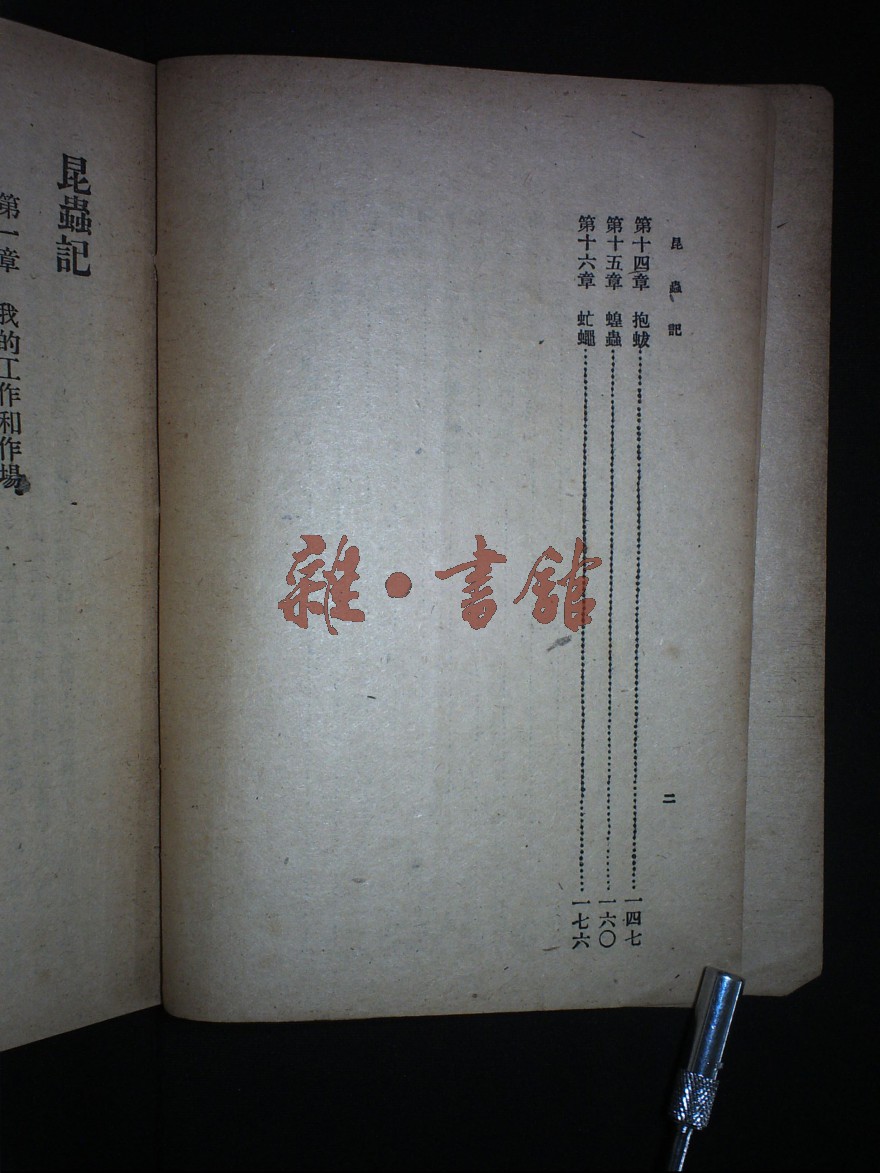 昆蟲記
二
第十四章 抱蛂 一四七
第十五章 蝗蟲 一六〇
第十六章 虻蠅 一七六
雜·書館
昆蟲記
第一章 我的工作和作場